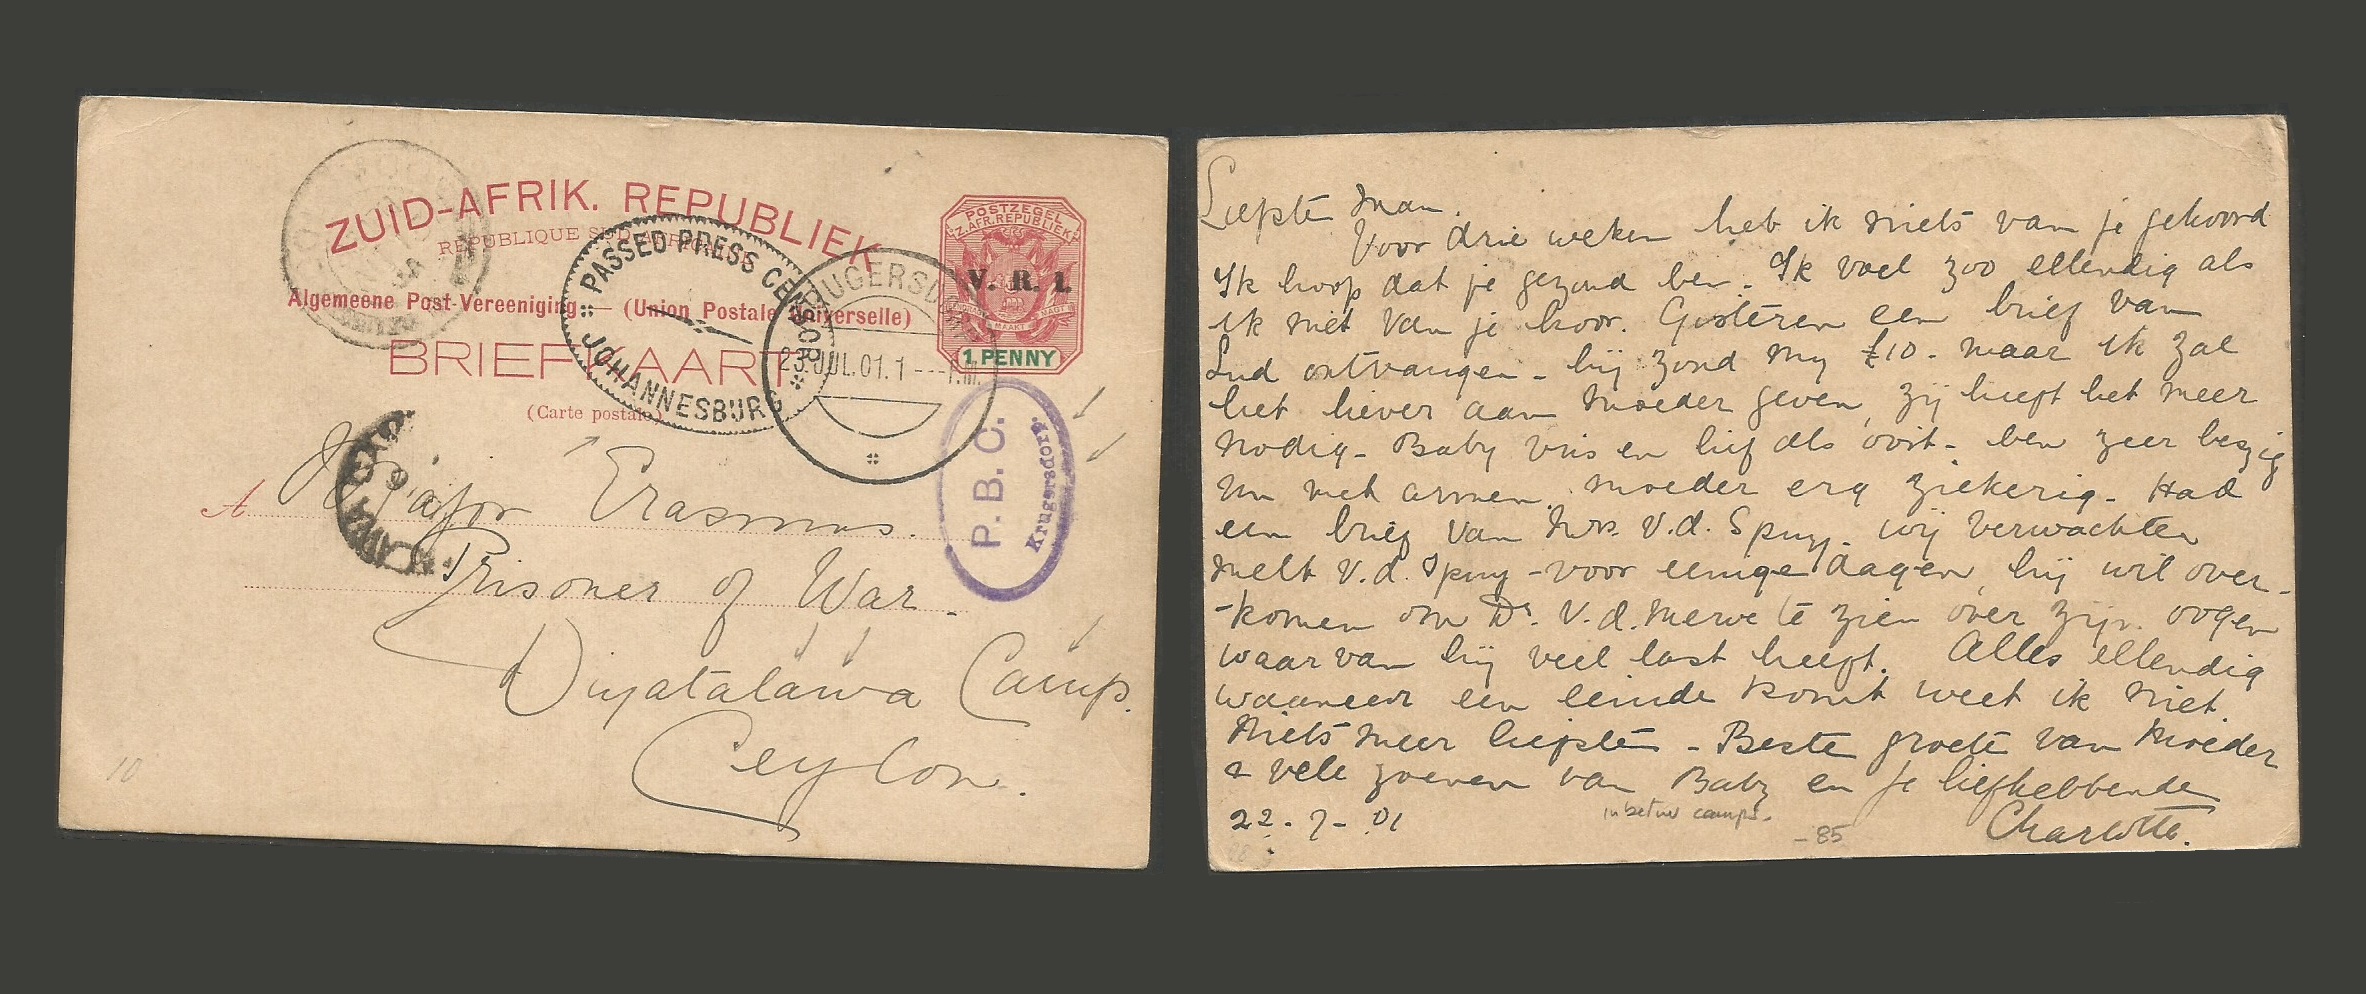 ZUID-AFRIK. REPUBLIEK
REPUBLIQUE SUD AFRICAINE
Algemeene Post-Vereeniging — (Union Postale Universelle)
BRIEFKAART
(Carte postale)
POSTZEGEL
Z.AFR.REPUBLIEK
V. R. I.
1 PENNY
PASSED PRESS CENSOR
JOHANNESBURG
KRUGERSDORP
23 JUL.01.1 --- P.M.
P. B. C.
Krugersdorp.
A Major Erasmus.
Prisoner of War -
Diyatalawa Camp.
Ceylon.
10
Liefste Man.
Voor drie weken heb ik niets van je gehoord
Ik hoop dat je gezond ben. Ik voel zoo ellendig als
ik niet van je hoor. Gisteren een brief van
ontvangen - hij zond my £10 - maar ik zal
het liever aan Moeder geven, zij heeft het meer
nodig - Baby vris en lief als ooit - ben zeer bezig
nu met armen. Moeder erg ziekerig - Had
een brief van Mrs. V.d. Spuy - wij verwachten
V.d. Spuy - voor eenige dagen, hij wil over-
-komen om Dr. V.d. Merwe te zien over zijn oogen
waarvan hij veel last heeft. Alles ellendig
waaneer een einde komt weet ik niet.
Niets meer liefste - Beste groete van Moeder
& vele zoenen van Baby en je liefhebbende
22 - 7 - 01
Charlotte.
camp.
- 85